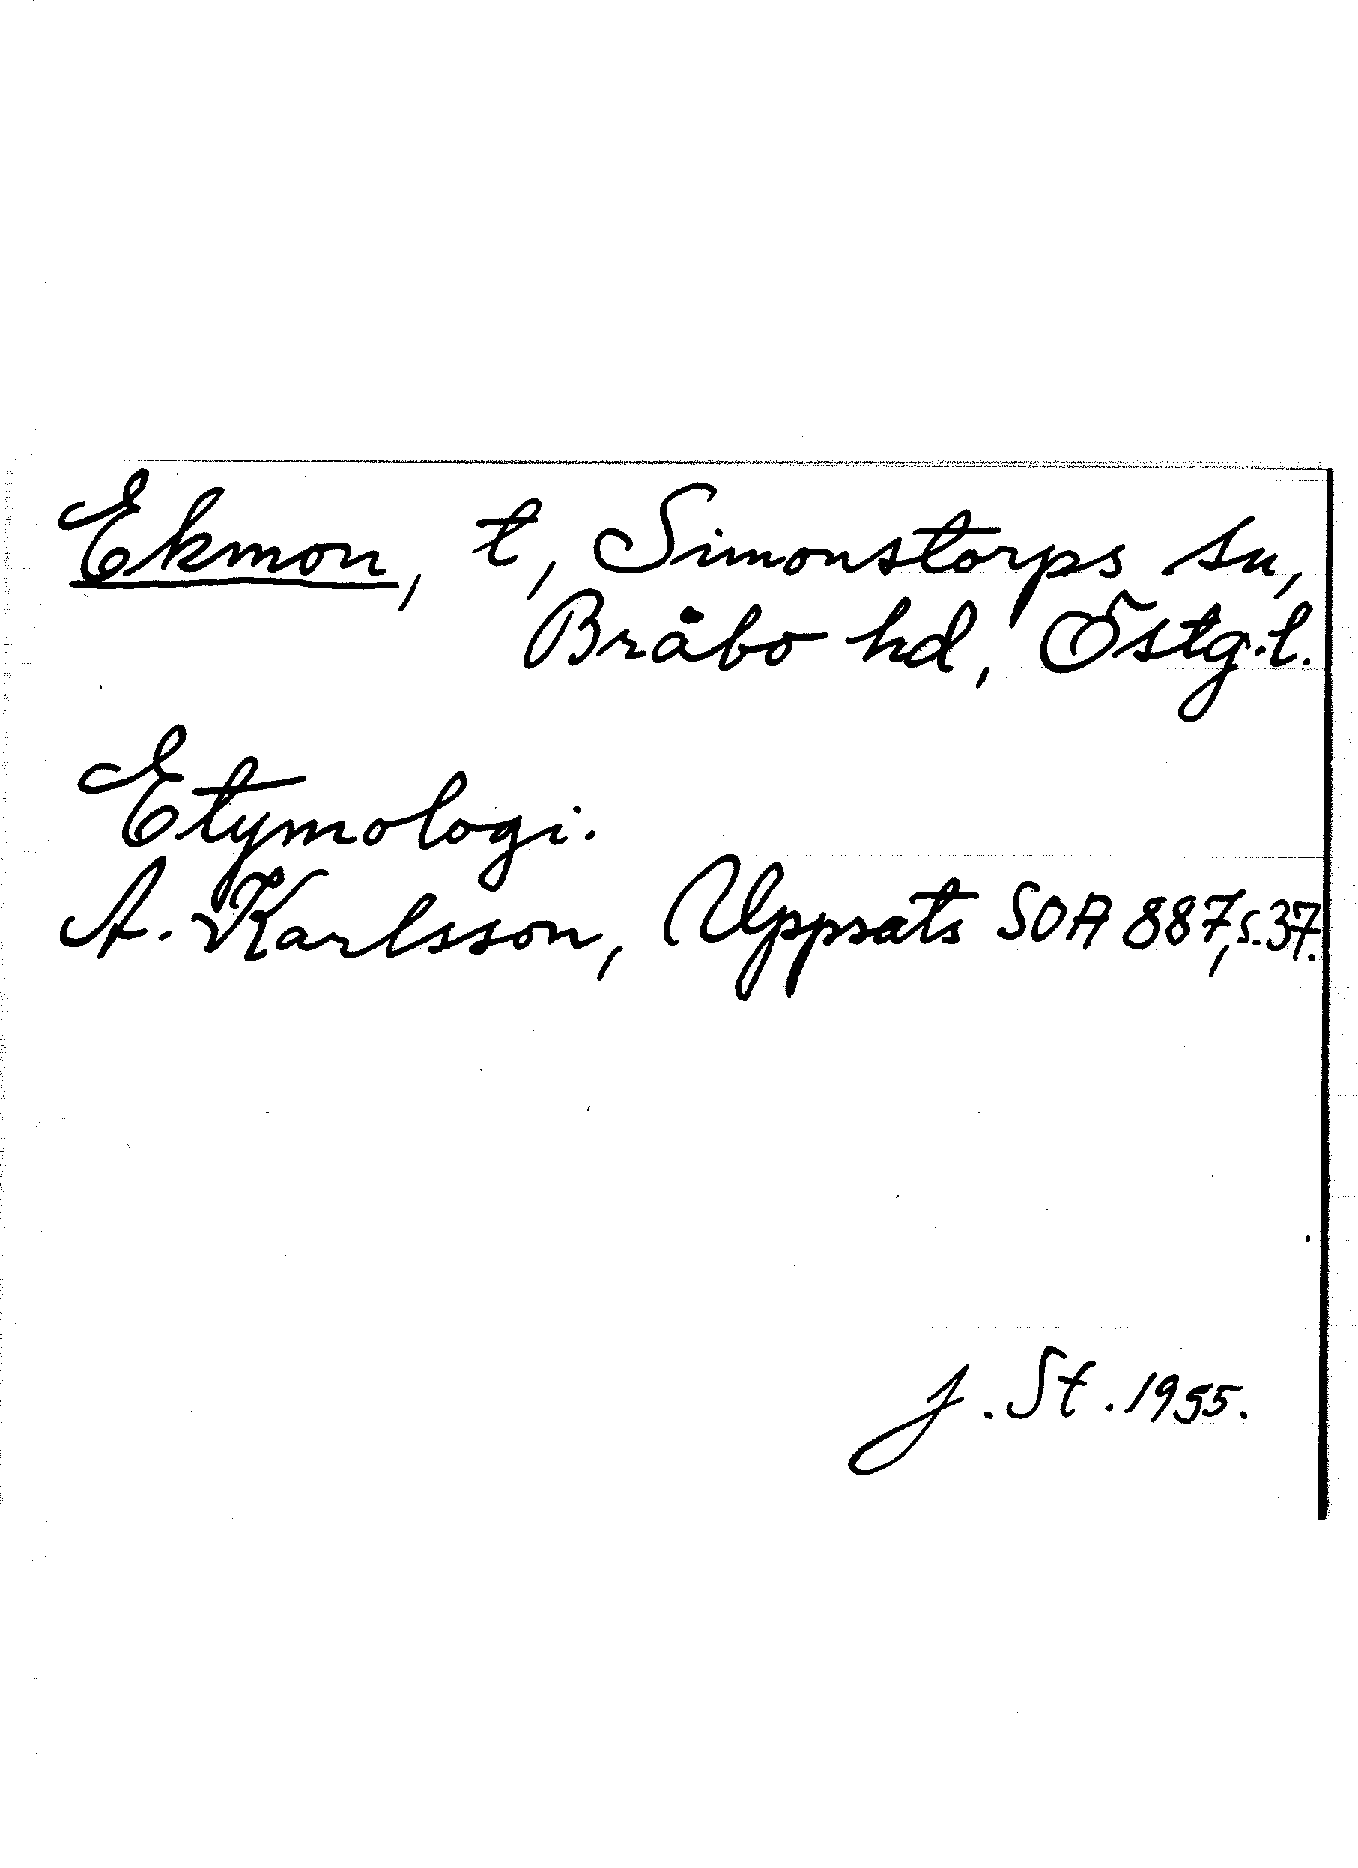 Ekmon, t, Simonstorps sn,
Bråbo hd, Östg.l.
Etymologi.
A. Karlsson, Uppsats SOA 887, s. 37.
J. St. 1955.